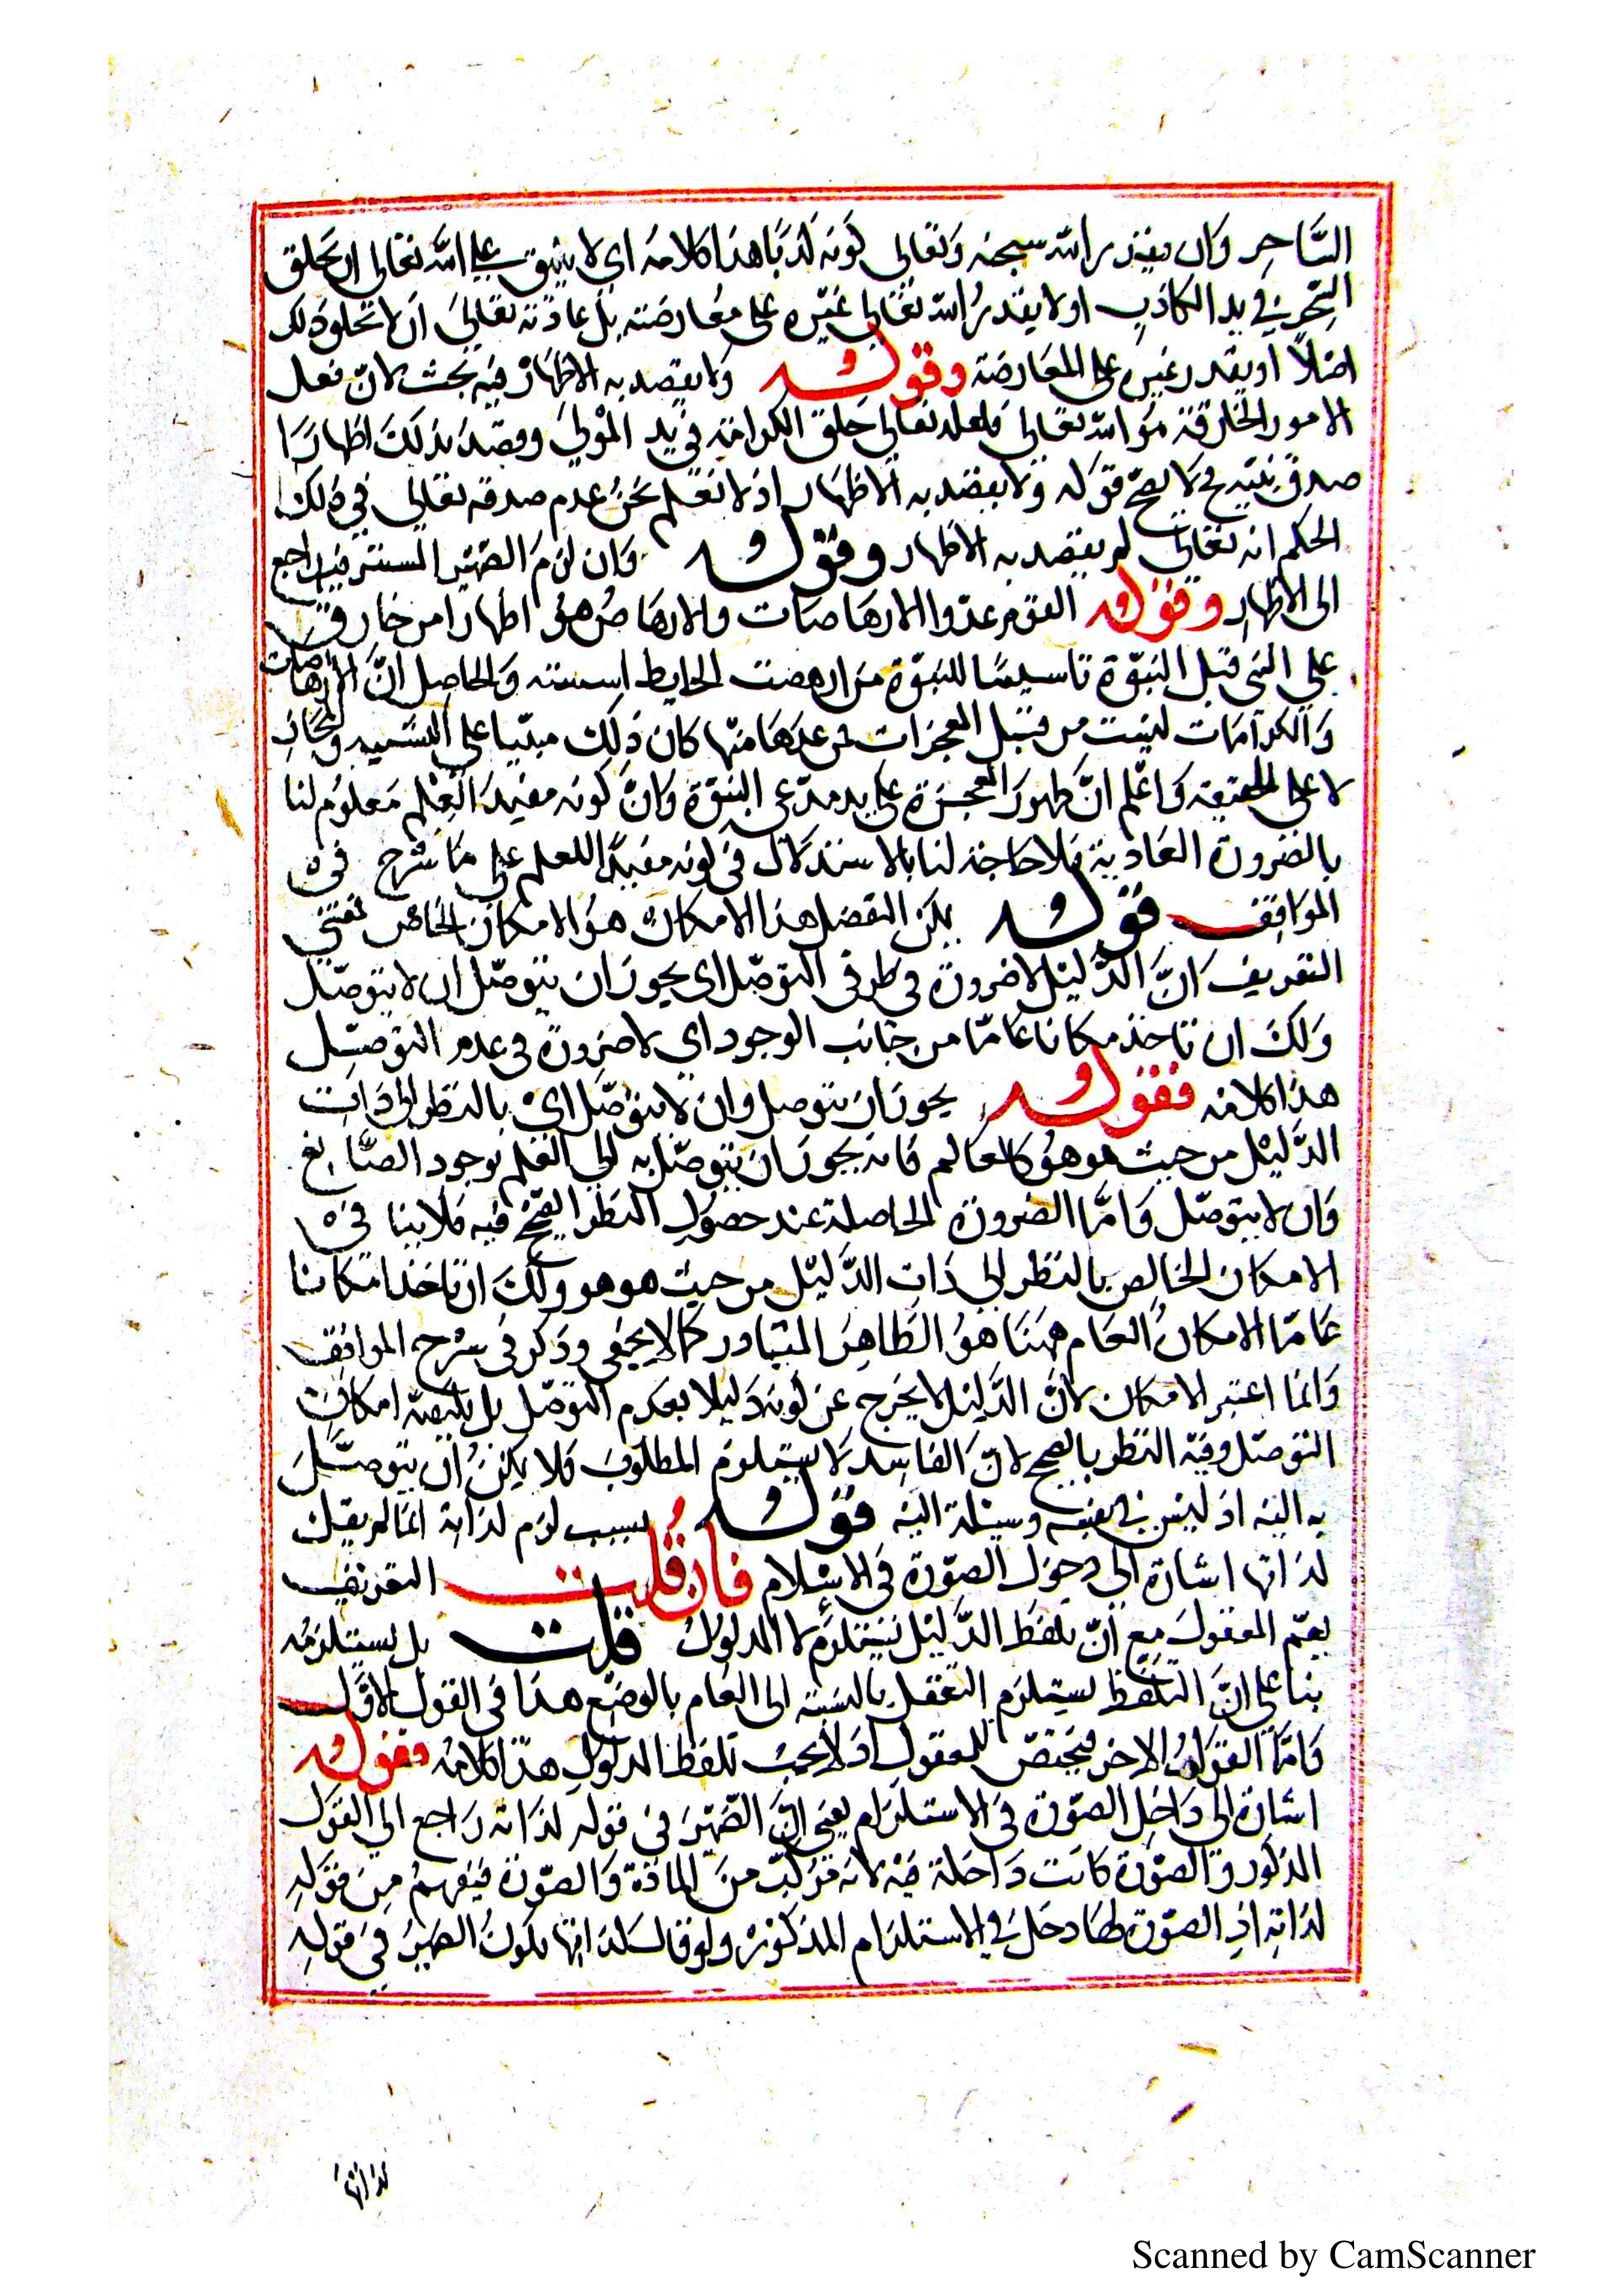 الساحر وان يقدر الله سبحنه وتعالى كونه كذبا هذا كلامه اى لا يتفق على الله تعالى ان يخلق
السِّحر في يد الكاذب او لا يقدر الله تعالى غيره على معارضته بل عادته تعالى ان لا تخلو ذلك
اصلا او يقدر غيره على المعارضة وقوله ولا يقصد به الاظهار فيه بحث لان فعل
الامور الخارقة من الله تعالى فلعله تعالى خلق الكرامة في يد المولى وقصد بذلك اظهارا
صدق نبيه فح لا يصح قوله ولا يقصد به الاظهار اذ لا نعلم نحن عدم صدقه تعالى في ذلك
الحكم انه تعالى لم يقصد به الاظهار وقوله وان لزم الضمير المستتر فيه راجع
الى الاظهار وقوله القوم عدوا الارهاصات والارهاص هو اظهار امر خارق
على النبي قبل النبوة تاسيسا للنبوة من ارهصت الحايط اسسته والحاصل ان الارهاصات
والكرامات ليست من قبيل المعجزات فمن عدها منها كان ذلك مبنيا على التشبيه والمجاز
لا على الحقيقة واعلم ان ظهور المعجزة على يد مدعى النبوة وان كونه مفيد العلم معلوم لنا
بالضرورة العادية فلا حاجة لنا بالاستدلال في كونه مفيدا للعلم على ما شرح في
المواقف قوله يمكن التفضل هذا الامكان هو الامكان الخاص فمعنى
التعريف ان الدليل لا ضرورة في طرفى التوصل اى يجوز ان يتوصل ان لا يتوصل
ولك ان تاخذ مكانا عاما من جانب الوجود اى لا ضرورة في عدم التوصل
هذا كلامه فقوله يجوز ان يتوصل وان لا يتوصل اى بالنظر الى ذات
الدليل من حيث هو هو كالعالم فانه يجوز ان يتوصل به الى العلم بوجود الصانع
وان لا يتوصل واما الضرورة الحاصلة عند حصول النظر الصحيح فيه فلا ينافى
الامكان الخالص بالنظر الى ذات الدليل من حيث هو هو ولك ان تاخذ امكانا
عاما الامكان العام ههنا هو الظاهر المتبادر كما لا يخفى وذكر في شرح المواقف
وانما اعتبر الامكان لان الدليل لا يخرج عن كونه دليلا بعدم التوصل بل يكفيه امكان
التوصل وقيد النظر بالصحيح لان الفاسد لا يستلزم المطلوب فلا يمكن ان يتوصل
به اليه اذ ليس في نفسه وسيلة اليه قوله بسبب لزم لذاته انما لم يقل
لذاتها اشارة الى دخول الصورة في الاستلام فان قلت التعريف
يعم المعقول مع ان تلفظ الدليل يستلزم لا المدلول قلت بل يستلزمه
بنا على ان التلفظ يستلزم التعقل بالنسبة الى العام بالوضع هذا في القول الاول
واما القول الاخر فيختص للمعقول اذ لا يجب تلفظ المدلول هذا كلامه فقوله
اشارة الى داخل الصورة في الاستلزام يعنى ان الضمير في قوله لذاته راجع الى القول
المذكور والصورة كانت داخلة فيه لانه مركب من المادة والصورة فيفهم من قوله
لذاته اذ الصورة لها دخل في الاستلزام المذكور ولو قال لذاتها يكون الضمير في قوله
لذاتها
Scanned by CamScanner